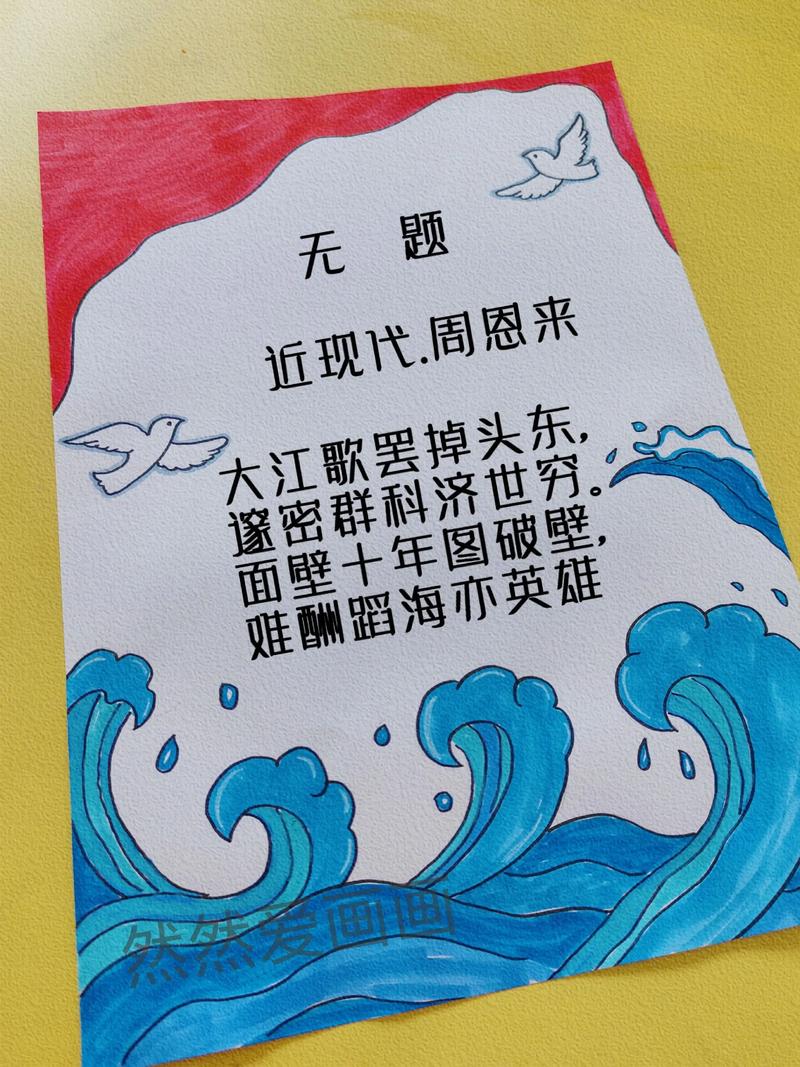 无 题
近现代.周恩来
大江歌罢掉头东，
邃密群科济世穷。
面壁十年图破壁，
难酬蹈海亦英雄
然然爱画画